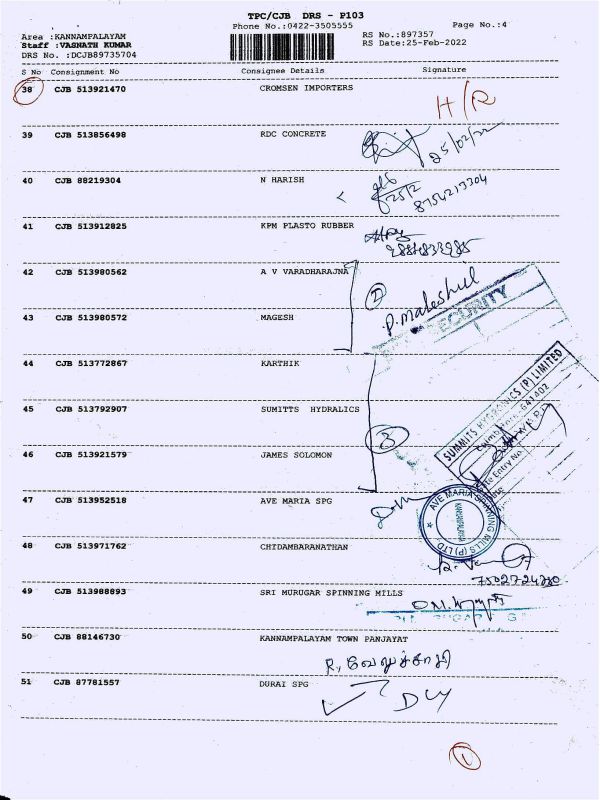 TPC/CJB DRS - P103
Phone No.:0422-3505555
Page No.:4
Area :KANNAMPALAYAM
RS No.:897357
Staff :VASNATH KUMAR
RS Date:25-Feb-2022
DRS No. :DCJB89735704
S No Consignment No Consignee Details Signature
38 CJB 513921470 CROMSEN IMPORTERS
H/R
39 CJB 513856498 RDC CONCRETE
25/02/22
40 CJB 88219304 N HARISH
25/2
8754217304
41 CJB 513912825 KPM PLASTO RUBBER
42 CJB 513980562 A V VARADHARAJNA
2
SECURITY
43 CJB 513980572 MAGESH
44 CJB 513772867 KARTHIK
SUMMITS HYDRONICS (P) LIMITED
641402
45 CJB 513792907 SUMITTS HYDRALICS
3
Entry No
46 CJB 513921579 JAMES SOLOMON
47 CJB 513952518 AVE MARIA SPG
AVE MARIA SPINNING MILLS (P) LTD
48 CJB 513971762 CHIDAMBARANATHAN
49 CJB 513988893 SRI MURUGAR SPINNING MILLS
50 CJB 88146730 KANNAMPALAYAM TOWN PANJAYAT
51 CJB 87781557 DURAI SPG
1